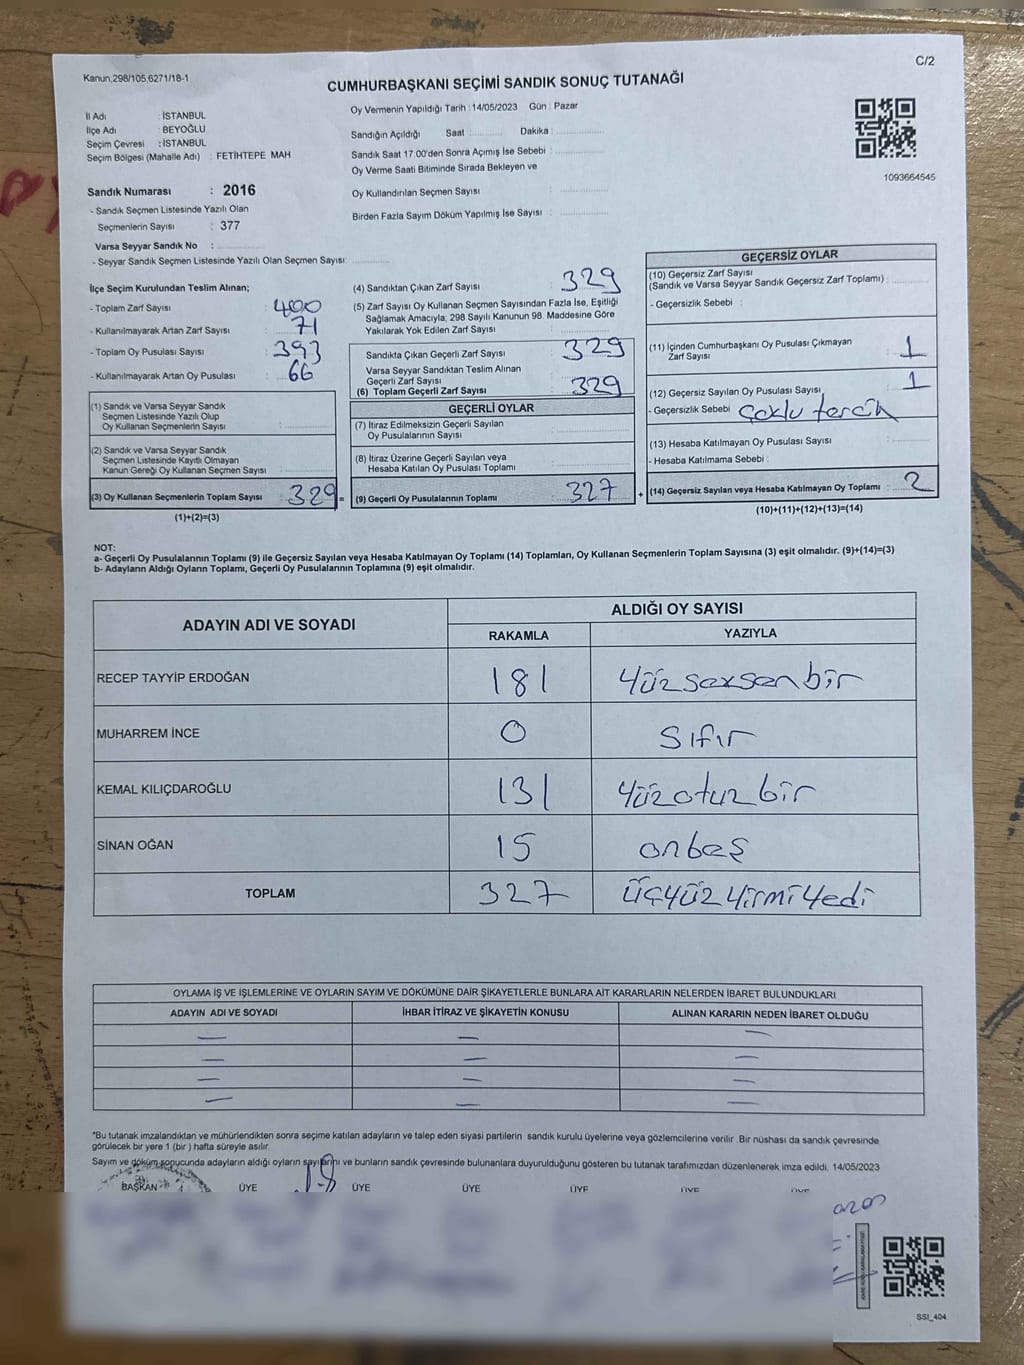 C/2
Kanun;298/105,6271/18-1
CUMHURBAŞKANI SEÇİMİ SANDIK SONUÇ TUTANAĞI
İl Adı : İSTANBUL
İlçe Adı : BEYOĞLU
Seçim Çevresi : İSTANBUL
Seçim Bölgesi (Mahalle Adı) : FETİHTEPE MAH
Sandık Numarası : 2016
- Sandık Seçmen Listesinde Yazılı Olan
Seçmenlerin Sayısı : 377
Varsa Seyyar Sandık No :
- Seyyar Sandık Seçmen Listesinde Yazılı Olan Seçmen Sayısı:
Oy Vermenin Yapıldığı Tarih : 14/05/2023 Gün : Pazar
Sandığın Açıldığı Saat Dakika :
Sandık Saat 17:00'den Sonra Açımış İse Sebebi :
Oy Verme Saati Bitiminde Sırada Bekleyen ve
Oy Kullandırılan Seçmen Sayısı :
Birden Fazla Sayım Döküm Yapılmış İse Sayısı :
1093664545
İlçe Seçim Kurulundan Teslim Alınan;
- Toplam Zarf Sayısı : 400
- Kullanılmayarak Artan Zarf Sayısı : 71
- Toplam Oy Pusulası Sayısı : 393
- Kullanılmayarak Artan Oy Pusulası : 66
(1) Sandık ve Varsa Seyyar Sandık
Seçmen Listesinde Yazılı Olup
Oy Kullanan Seçmenlerin Sayısı :
(2) Sandık ve Varsa Seyyar Sandık
Seçmen Listesinde Kayıtlı Olmayan
Kanun Gereği Oy Kullanan Seçmen Sayısı :
(3) Oy Kullanan Seçmenlerin Toplam Sayısı : 329 =
(1)+(2)=(3)
(4) Sandıktan Çıkan Zarf Sayısı : 329
(5) Zarf Sayısı Oy Kullanan Seçmen Sayısından Fazla İse, Eşitliği
Sağlamak Amacıyla; 298 Sayılı Kanunun 98. Maddesine Göre
Yakılarak Yok Edilen Zarf Sayısı :
Sandıkta Çıkan Geçerli Zarf Sayısı : 329
Varsa Seyyar Sandıktan Teslim Alınan
Geçerli Zarf Sayısı :
(6) Toplam Geçerli Zarf Sayısı : 329
GEÇERLİ OYLAR
(7) İtiraz Edilmeksizin Geçerli Sayılan
Oy Pusulalarının Sayısı :
(8) İtiraz Üzerine Geçerli Sayılan veya
Hesaba Katılan Oy Pusulası Toplamı :
(9) Geçerli Oy Pusulalarının Toplamı : 327 +
GEÇERSİZ OYLAR
(10) Geçersiz Zarf Sayısı
(Sandık ve Varsa Seyyar Sandık Geçersiz Zarf Toplamı) :
- Geçersizlik Sebebi :
(11) İçinden Cumhurbaşkanı Oy Pusulası Çıkmayan
Zarf Sayısı : 1
(12) Geçersiz Sayılan Oy Pusulası Sayısı : 1
- Geçersizlik Sebebi : çoklu tercih
(13) Hesaba Katılmayan Oy Pusulası Sayısı :
- Hesaba Katılmama Sebebi :
(14) Geçersiz Sayılan veya Hesaba Katılmayan Oy Toplamı : 2
(10)+(11)+(12)+(13)=(14)
NOT:
a- Geçerli Oy Pusulalarının Toplamı (9) ile Geçersiz Sayılan veya Hesaba Katılmayan Oy Toplamı (14) Toplamları, Oy Kullanan Seçmenlerin Toplam Sayısına (3) eşit olmalıdır. (9)+(14)=(3)
b- Adayların Aldığı Oyların Toplamı, Geçerli Oy Pusulalarının Toplamına (9) eşit olmalıdır.
ADAYIN ADI VE SOYADI ALDIĞI OY SAYISI
RAKAMLA YAZIYLA
RECEP TAYYİP ERDOĞAN 181 yüzseksenbir
MUHARREM İNCE 0 sıfır
KEMAL KILIÇDAROĞLU 131 yüzotuzbir
SİNAN OĞAN 15 onbeş
TOPLAM 327 üçyüzyirmiyedi
OYLAMA İŞ VE İŞLEMLERİNE VE OYLARIN SAYIM VE DÖKÜMÜNE DAİR ŞİKAYETLERLE BUNLARA AİT KARARLARIN NELERDEN İBARET BULUNDUKLARI
ADAYIN ADI VE SOYADI İHBAR İTİRAZ VE ŞİKAYETİN KONUSU ALINAN KARARIN NEDEN İBARET OLDUĞU
— — —
— — —
— — —
— — —
*Bu tutanak imzalandıktan ve mühürlendikten sonra seçime katılan adayların ve talep eden siyasi partilerin sandık kurulu üyelerine veya gözlemcilerine verilir. Bir nüshası da sandık çevresinde
görülecek bir yere 1 (bir) hafta süreyle asılır.
Sayım ve döküm sonucunda adayların aldığı oyların sayılarını ve bunların sandık çevresinde bulunanlara duyurulduğunu gösteren bu tutanak tarafımızdan düzenlenerek imza edildi. 14/05/2023
BAŞKAN ÜYE ÜYE ÜYE ÜYE ÜYE ÜYE
SSI_404